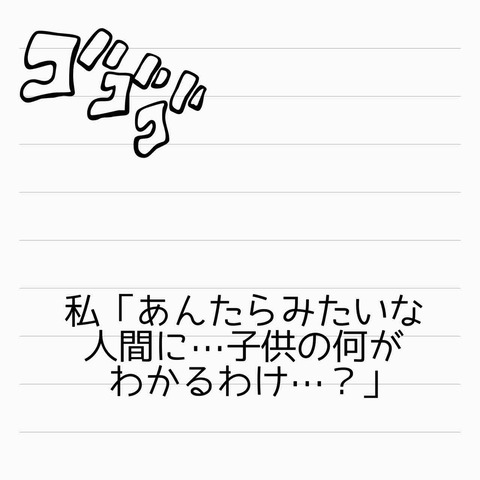 ゴゴゴ
私「あんたらみたいな
人間に…子供の何が
わかるわけ…？」